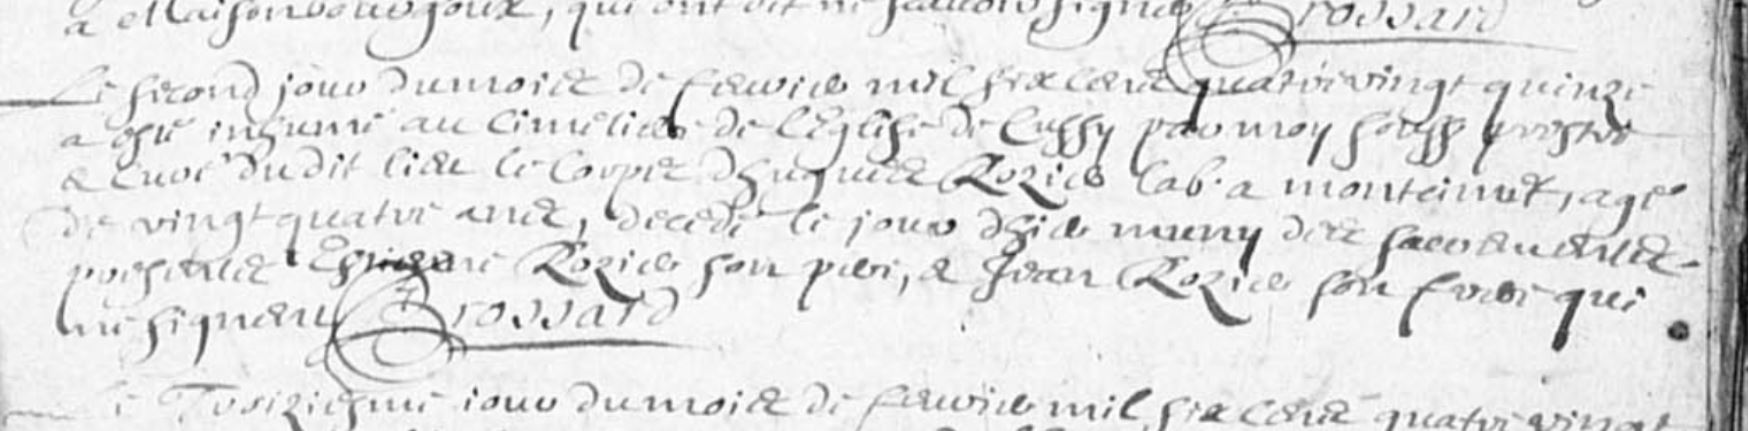 a Maisonbourgoux, qui ont dit ne scavoir signer Brossard
Le second jour du mois de fevrier mil six cent quatrevingt quinze
a esté inhumé au cimetier de l'Eglise de Cussy par moy soussg prestre
& curé dudit lieu le corps d'hugues Rozier lab. a montcimet, agé
de vingt quatre ans, decedé le jour d'hier muny des sacremens
presents Rozier son pere, & Jean Rozier son frere qui
ne signent Brossard
Le Troiziesme jour du mois de fevrier mil six cent quatre vingt